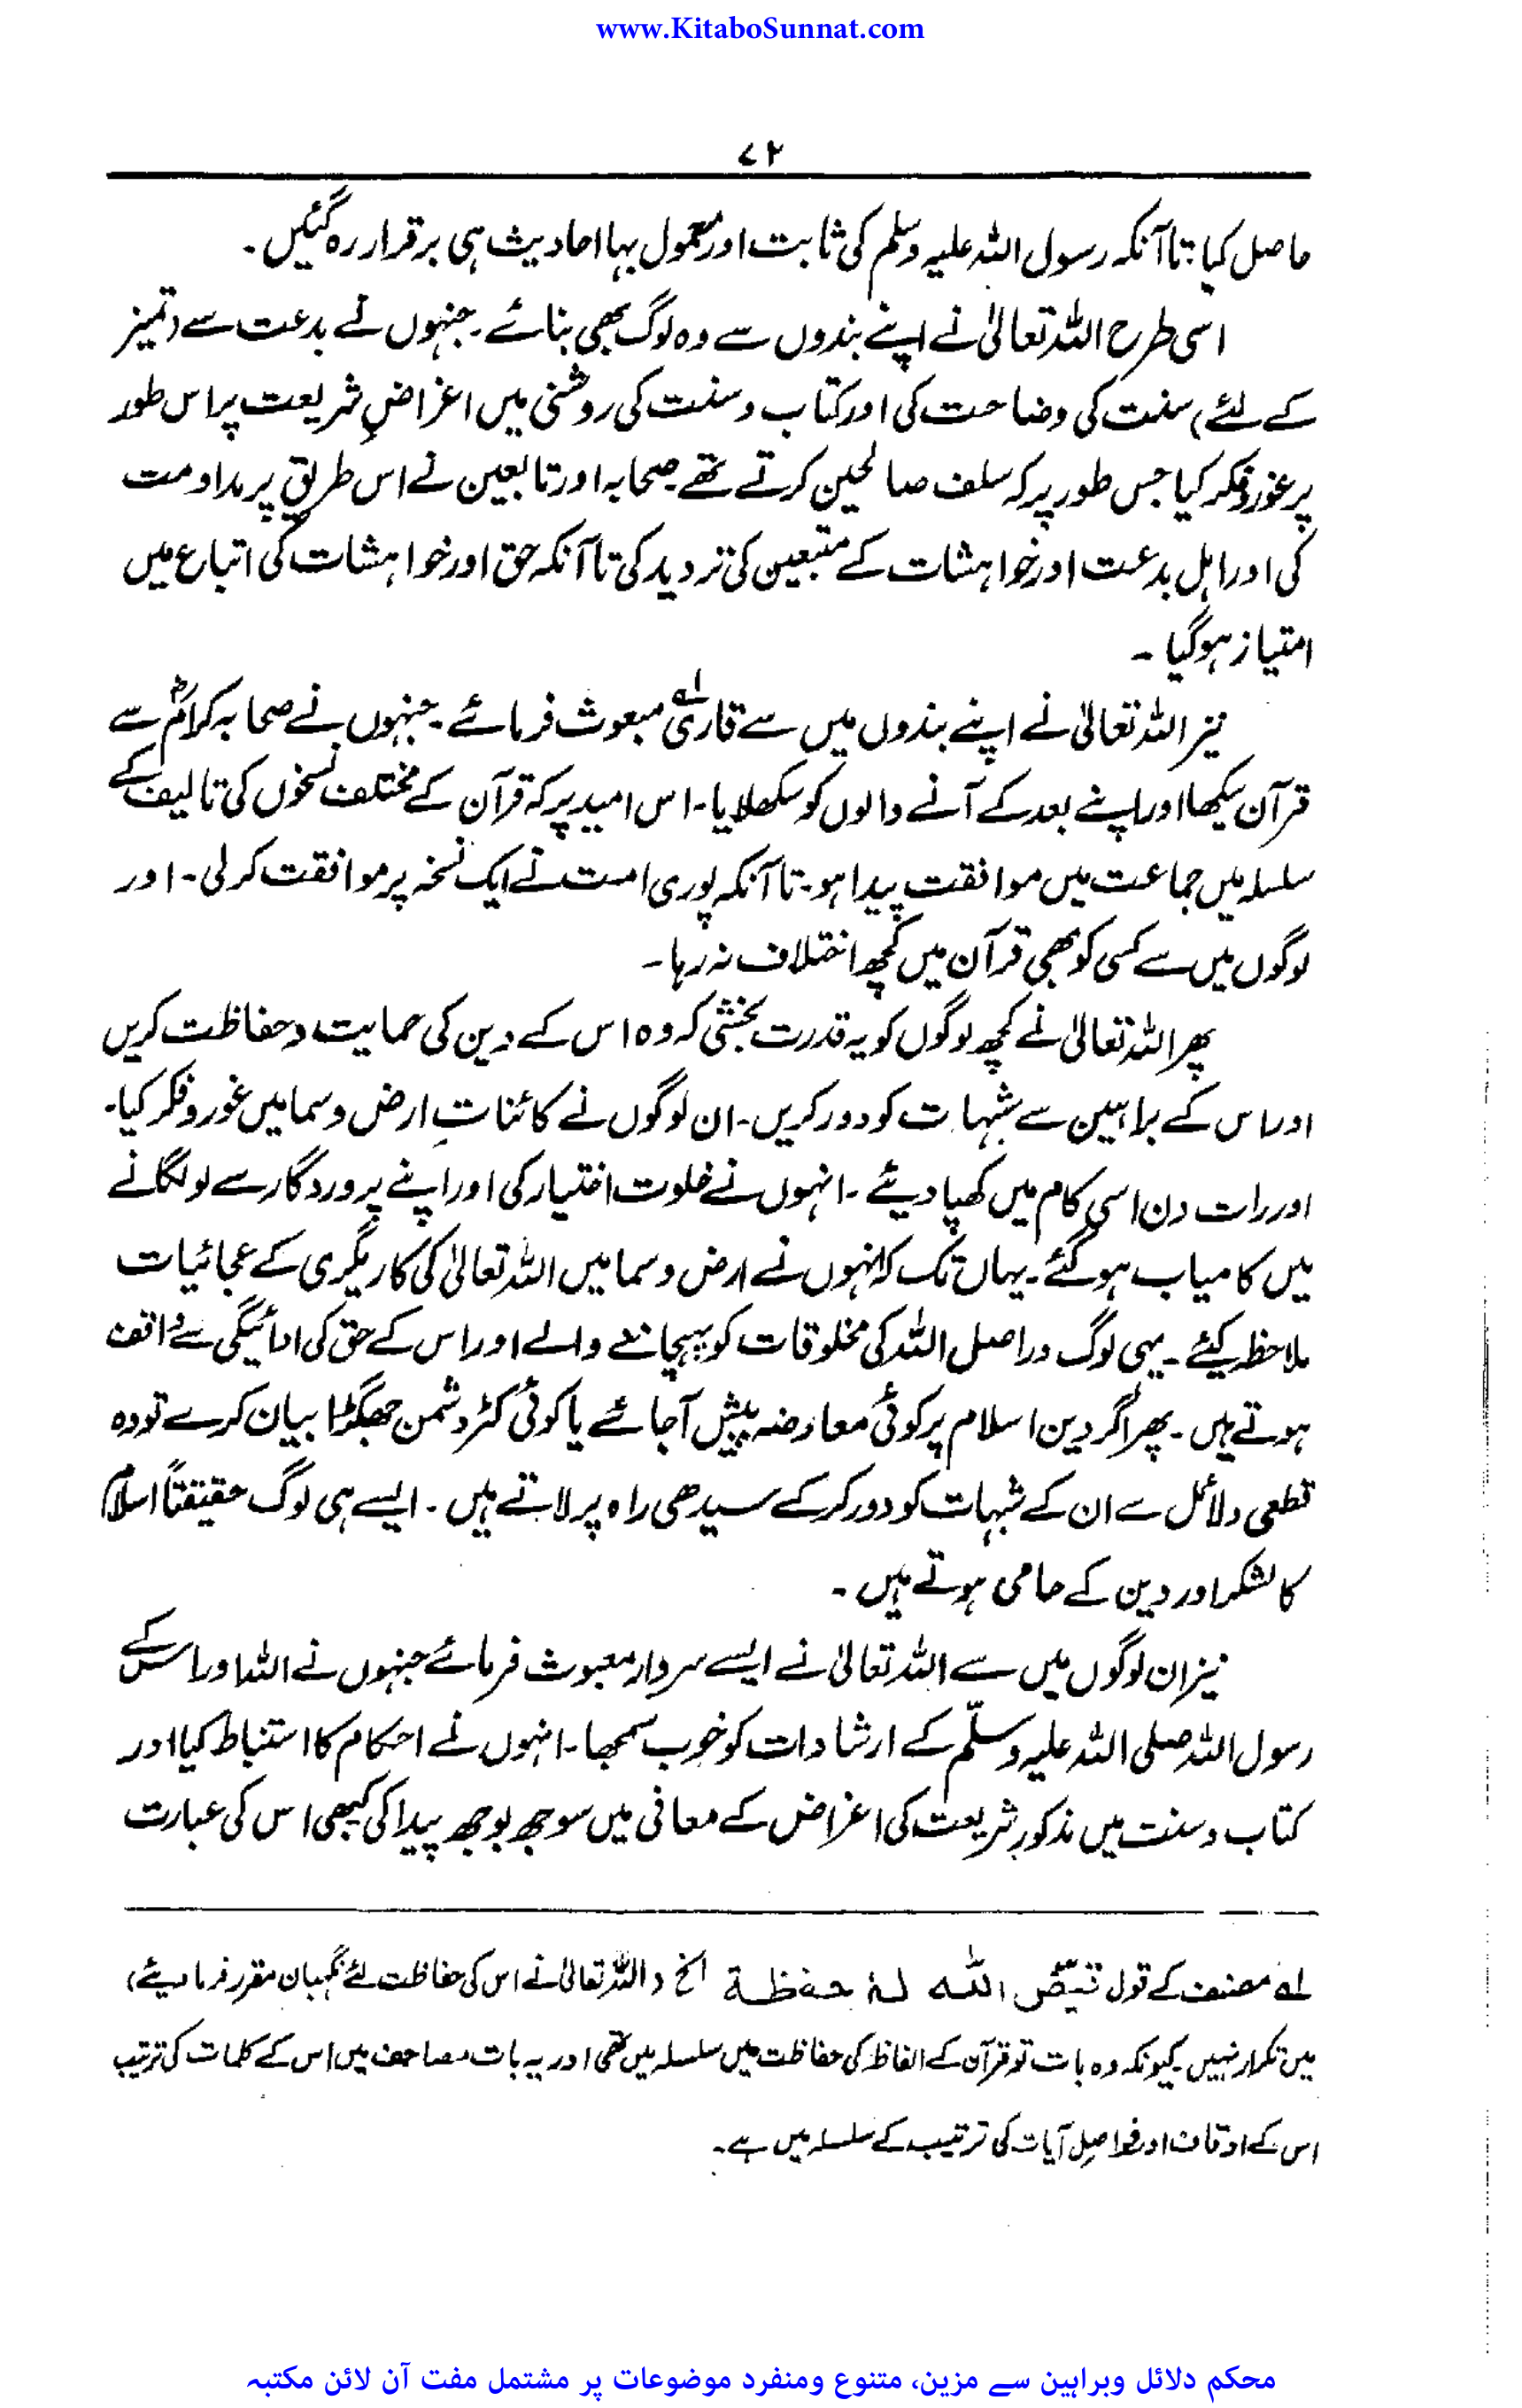 www.KitaboSunnat.com
۷۲
حاصل کیا؛ تاآنکہ رسول اللہ علیہ وسلم کی ثابت اور معمول بہا احادیث ہی برقرار رہ گئیں۔
اسی طرح اللہ تعالیٰ نے اپنے بندوں سے وہ لوگ بھی بنائے۔ جنہوں نے بدعت سے (تمیز
کے لئے) سنت کی وضاحت کی اور کتاب و سنت کی روشنی میں اغراضِ شریعت پر اس طور
پر غور و فکر کیا جس طور پر کہ سلف صالحین کرتے تھے۔ صحابہ اور تابعین نے اس طریق پر مداومت
کی اور اہل بدعت اور خواہشات کے متبعین کی تردید کی تاآنکہ حق اور خواہشات کی اتباع میں
امتیاز ہو گیا ۔
نیز اللہ تعالیٰ نے اپنے بندوں میں سے قاریؑ لہ مبعوث فرمائے۔ جنہوں نے صحابہ کرامؓ سے
قرآن سیکھا اور اپنے بعد کے آنے والوں کو سکھلایا۔ اس امید پر کہ قرآن کے مختلف نسخوں کی تالیف کے
سلسلہ میں جماعت میں موافقت پیدا ہو۔ تاآنکہ پوری امت نے ایک نسخہ پر موافقت کر لی۔ اور
لوگوں میں سے کسی کو بھی قرآن میں کچھ اختلاف نہ رہا۔
پھر اللہ تعالیٰ نے کچھ لوگوں کو یہ قدرت بخشی کہ وہ اس کے دین کی حمایت و حفاظت کریں
اور اس کے براہین سے شبہات کو دور کریں۔ ان لوگوں نے کائناتِ ارض و سما میں غور و فکر کیا۔
اور رات دن اسی کام میں کھپا دیئے ۔ انہوں نے خلوت اختیار کی اور اپنے پروردگار سے لو لگانے
میں کامیاب ہو گئے۔ یہاں تک کہ انہوں نے ارض و سما میں اللہ تعالیٰ کی کاریگری کے عجائبات
ملاحظہ کیئے ۔ یہی لوگ دراصل اللہ کی مخلوقات کو پہچاننے والے اور اس کے حق کی ادائیگی سے واقف
ہوتے ہیں ۔ پھر اگر دین اسلام پر کوئی معارضہ پیش آجائے یا کوئی کٹر دشمن جھگڑا بیان کرے تو وہ
قطعی دلائل سے ان کے شبہات کو دور کر کے سیدھی راہ پر لاتے ہیں ۔ ایسے ہی لوگ حقیقتاً اسلام
کا لشکر اور دین کے حامی ہوتے ہیں ۔
نیز ان لوگوں میں سے اللہ تعالیٰ نے ایسے سردار مبعوث فرمائے جنہوں نے اللہ اور اس کے
رسول اللہ صلی اللہ علیہ وسلّم کے ارشادات کو خوب سمجھا۔ انہوں نے احکام کا استنباط کیا اور
کتاب و سنت میں مذکور شریعت کی اغراض کے معانی میں سوجھ بوجھ پیدا کی کبھی اس کی عبارت
لہ مصنف کے قول قیّض اللّٰہ لہٗ حفظۃ الخ (اللہ تعالیٰ نے اس کی حفاظت لئے نگہبان مقرر فرما دیئے)
میں تکرار نہیں۔ کیونکہ وہ بات تو قرآن کے الفاظ کی حفاظت میں سلسلہ میں تھی اور یہ بات مصاحف میں اس کے کلمات کی ترتیب
اس کے اوقاف اور فواصلِ آیات کی ترتیب کے سلسلہ میں ہے۔
محکم دلائل وبراہین سے مزین، متنوع ومنفرد موضوعات پر مشتمل مفت آن لائن مکتبہ